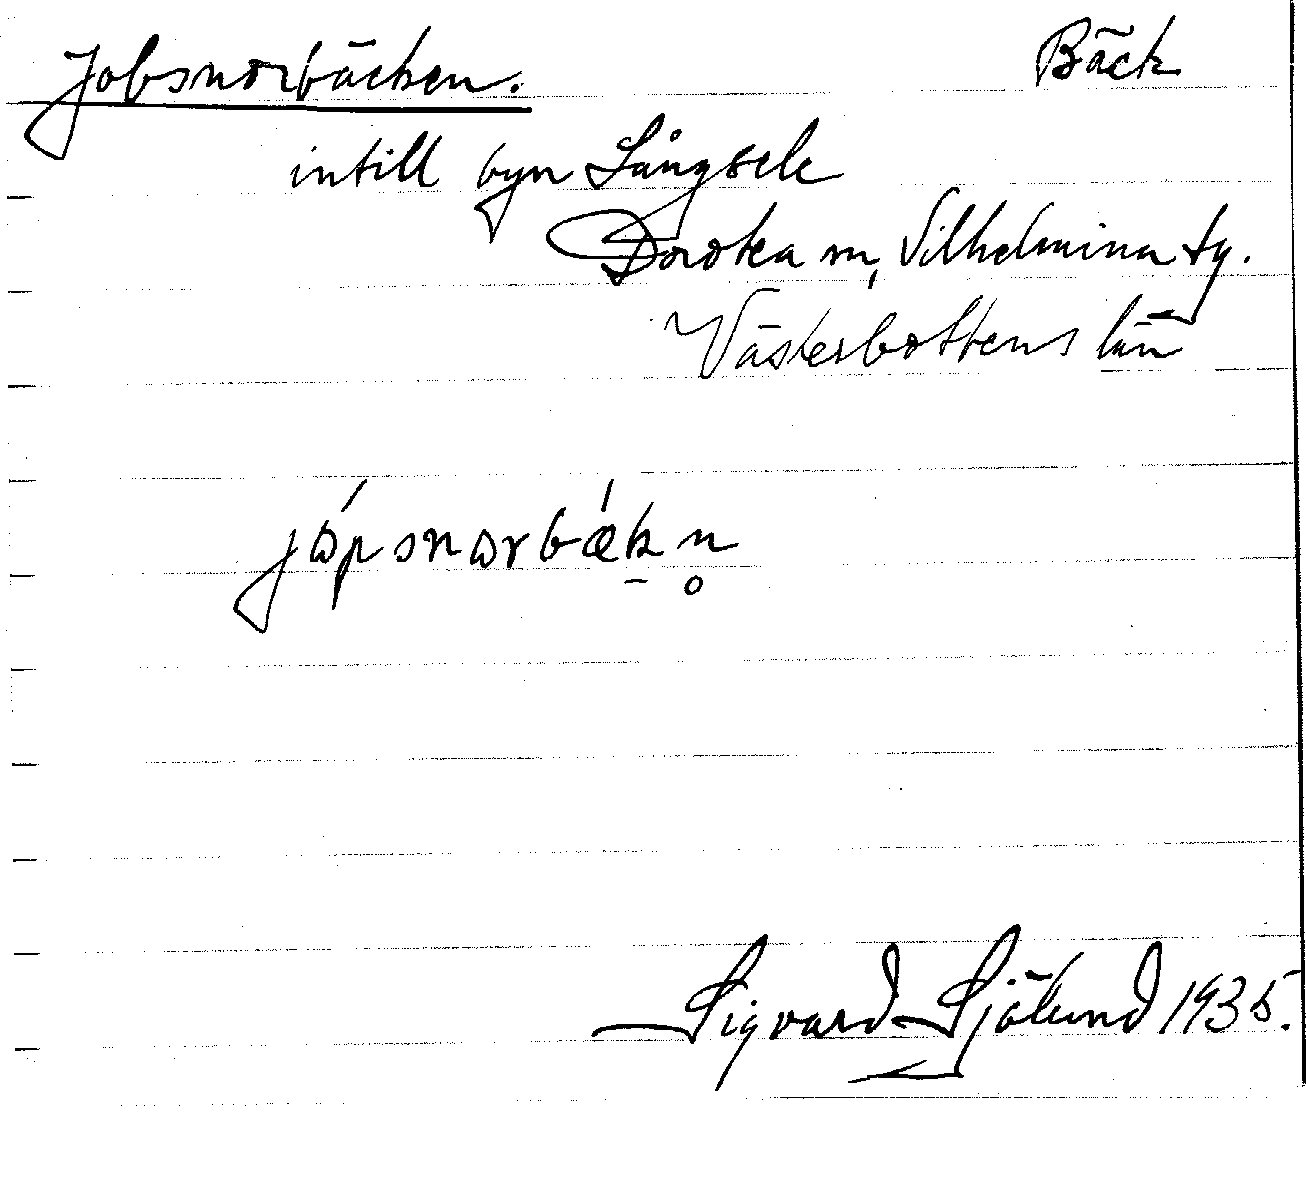 Jobsnorbäcken. Bäck
intill byn Långsele
Dorotea m, Vilhelmina ty.
Västerbottens län
jápsnarbǽk̠n̥
Sigvard Sjölund 1935.